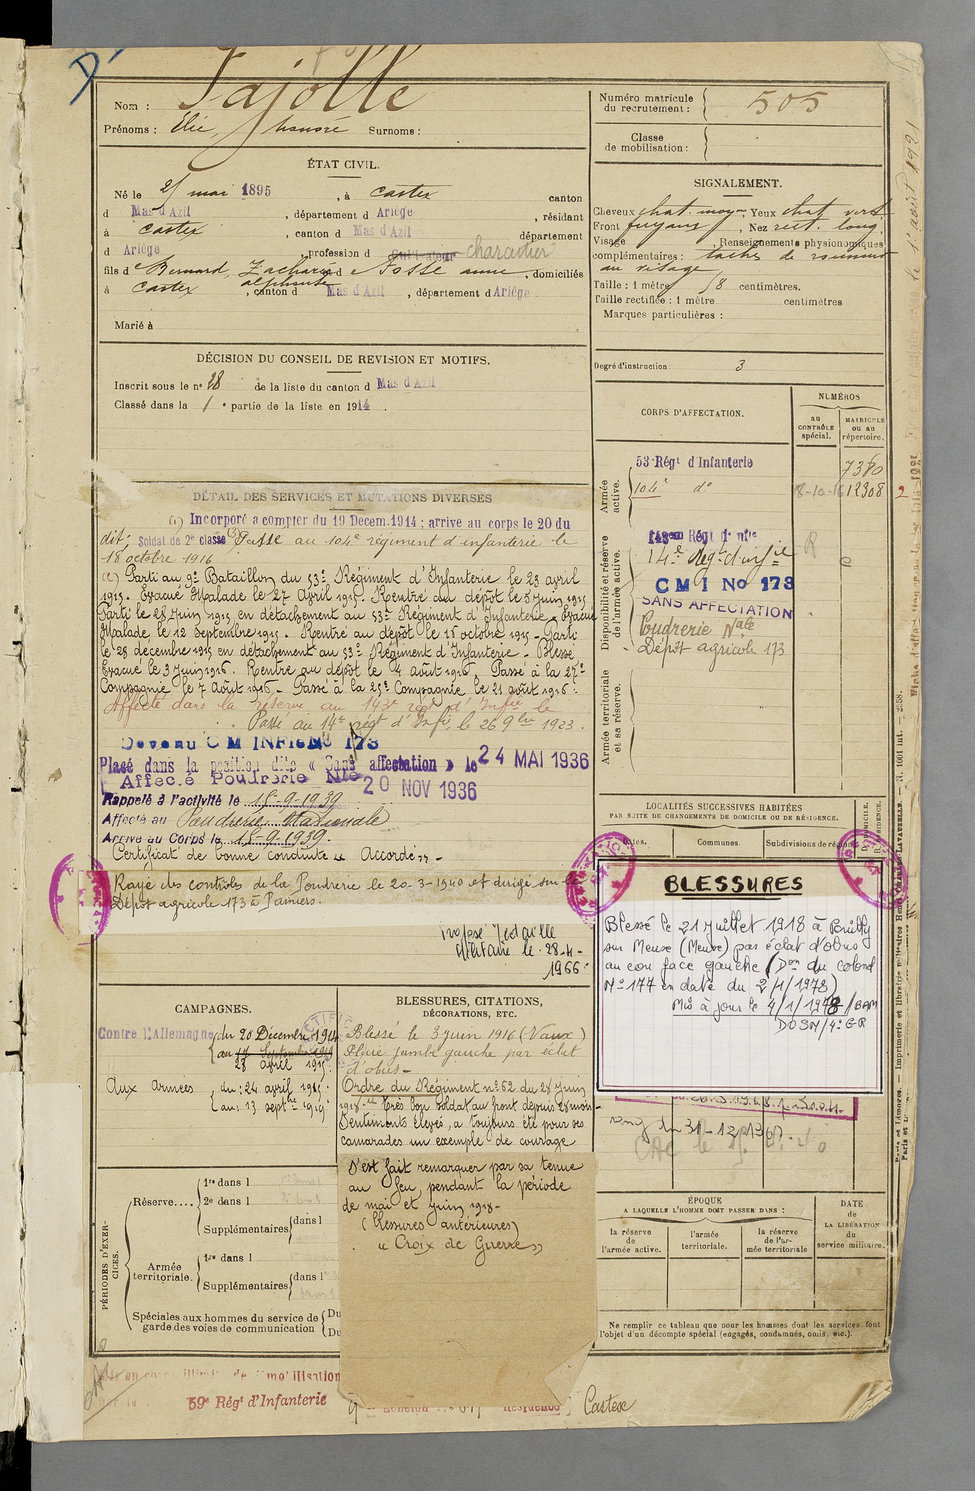 Nom : Fajolle
Prénoms : Elie, honoré Surnoms :
Numéro matricule du recrutement : 505
Classe de mobilisation :
ÉTAT CIVIL.
Né le 25 mai 1895, à Castex canton
d Mas d'Azil, département d Ariège, résidant
à Castex, canton d Mas d'Azil département
d Ariège profession d Cultivateur charcutier
fils de Bernard, Zacharie alphonse et d Fosse anne, domiciliés
à Castex, canton d Mas d'Azil, département d Ariège
Marié à
SIGNALEMENT.
Cheveux chat. moy. Yeux chat verd.
Front fuyant, Nez rect. long.
Visage, Renseignements physionomiques
complémentaires : taches de rousseur
au visage
Taille : 1 mètre 58 centimètres.
Taille rectifiée : 1 mètre centimètres
Marques particulières :
Degré d'instruction : 3
DÉCISION DU CONSEIL DE REVISION ET MOTIFS.
Inscrit sous le n° 28 de la liste du canton d Mas d'Azil
Classé dans la 1e partie de la liste en 1914.
DÉTAIL DES SERVICES ET MUTATIONS DIVERSES
Incorporé a compter du 19 Decem. 1914 ; arrive au corps le 20 du
dit; Soldat de 2e classe Passé au 104e régiment d'infanterie le
18 octobre 1916
Parti au 9e Bataillon du 53e Régiment d'Infanterie le 23 avril
1915. Evacué Malade le 27 Avril 1915. Rentré au dépôt le 8 Juin 1915
Parti le 28 Juin 1915 en détachement au 53e Régiment d'Infanterie - Evacué
Malade le 12 Septembre 1915. Rentré au dépôt le 15 octobre 1915 - Parti
le 29 décembre 1915 en détachement au 53e Régiment d'Infanterie - Blessé
Evacué le 3 Juin 1916. Rentré au dépôt le 4 août 1916. Passé à la 27e
Compagnie le 7 Août 1916 - Passé à la 25e Compagnie le 21 août 1916.
Affecté dans la réserve au 143e régt d'Infie le
Passé au 14e régt d'Infie le 26 9bre 1923.
Devenu C M INFIE No 173
Placé dans la position dite « Sans affectation » le 24 MAI 1936
Affecté Poudrerie Nle 20 NOV 1936
Rappelé à l'activité le 15-9-1939
Affecté au Poudrerie Nationale
Arrivé au Corps le 15-9-1939.
Certificat de bonne conduite « Accordé »
Rayé des contrôles de la Poudrerie le 20-3-1940 et dirigé sur le
Dépôt agricole 173 à Pamiers.
Médaille
Militaire le 28-4-
1966
CORPS D'AFFECTATION.
NUMÉROS
au CONTRÔLE spécial.
MATRICULE ou au répertoire.
Armée active.
53e Régt d'Infanterie 7380
104e do 18-10-16 12308
Disponibilité et réserve de l'armée active.
143em Régt d'Inf
14e Régt d'infie
C M I No 173
SANS AFFECTATION
Poudrerie Nale
Dépôt agricole 173
Armée territoriale et sa réserve.
LOCALITÉS SUCCESSIVES HABITÉES
PAR SUITE DE CHANGEMENTS DE DOMICILE OU DE RÉSIDENCE.
Dates. Communes. Subdivisions de région. DOMICILE. RÉSIDENCE.
BLESSURES
Blessé le 21 Juillet 1918 à
sur Meuse (Meuse) par éclat d'obus
au cou face gauche (Don du colonel
No 177 en date du 2/1/1978)
Mis à jour le 4/1/1978 / BAM
CAMPAGNES.
Contre l'Allemagne du 20 Décembre 1914
au 17 Septembre 1919
23 avril 1915
Aux armées du : 24 avril 1915
au : 13 septbre 1919
BLESSURES, CITATIONS,
DÉCORATIONS, ETC.
Blessé le 3 juin 1916 (Vaux)
Plaie jambe gauche par éclat
d'obus -
Ordre du Régiment n° 62 du 28 Juin
1918. Très bon soldat au front depuis 28 mois
Sentiments élevés, a toujours été pour ses
camarades un exemple de courage
S'est fait remarquer par sa tenue
au feu pendant la période
de mai et Juin 1918 -
(Blessures antérieures)
« Croix de Guerre »
31-12-1967
PÉRIODES D'EXERCICES.
Réserve....
1re dans l
2e dans l
Supplémentaires dans l
Armée territoriale.
1re dans l
Supplémentaires dans l
Spéciales aux hommes du service de garde des voies de communication
Du
Du
ÉPOQUE
A LAQUELLE L'HOMME DOIT PASSER DANS :
la réserve de l'armée active.
l'armée territoriale.
la réserve de l'armée territoriale
DATE de LA LIBÉRATION du service militaire.
Ne remplir ce tableau que pour les hommes dont les services font
l'objet d'un décompte spécial (engagés, condamnés, omis, etc.).
59e Régt d'Infanterie
Résidence Castex